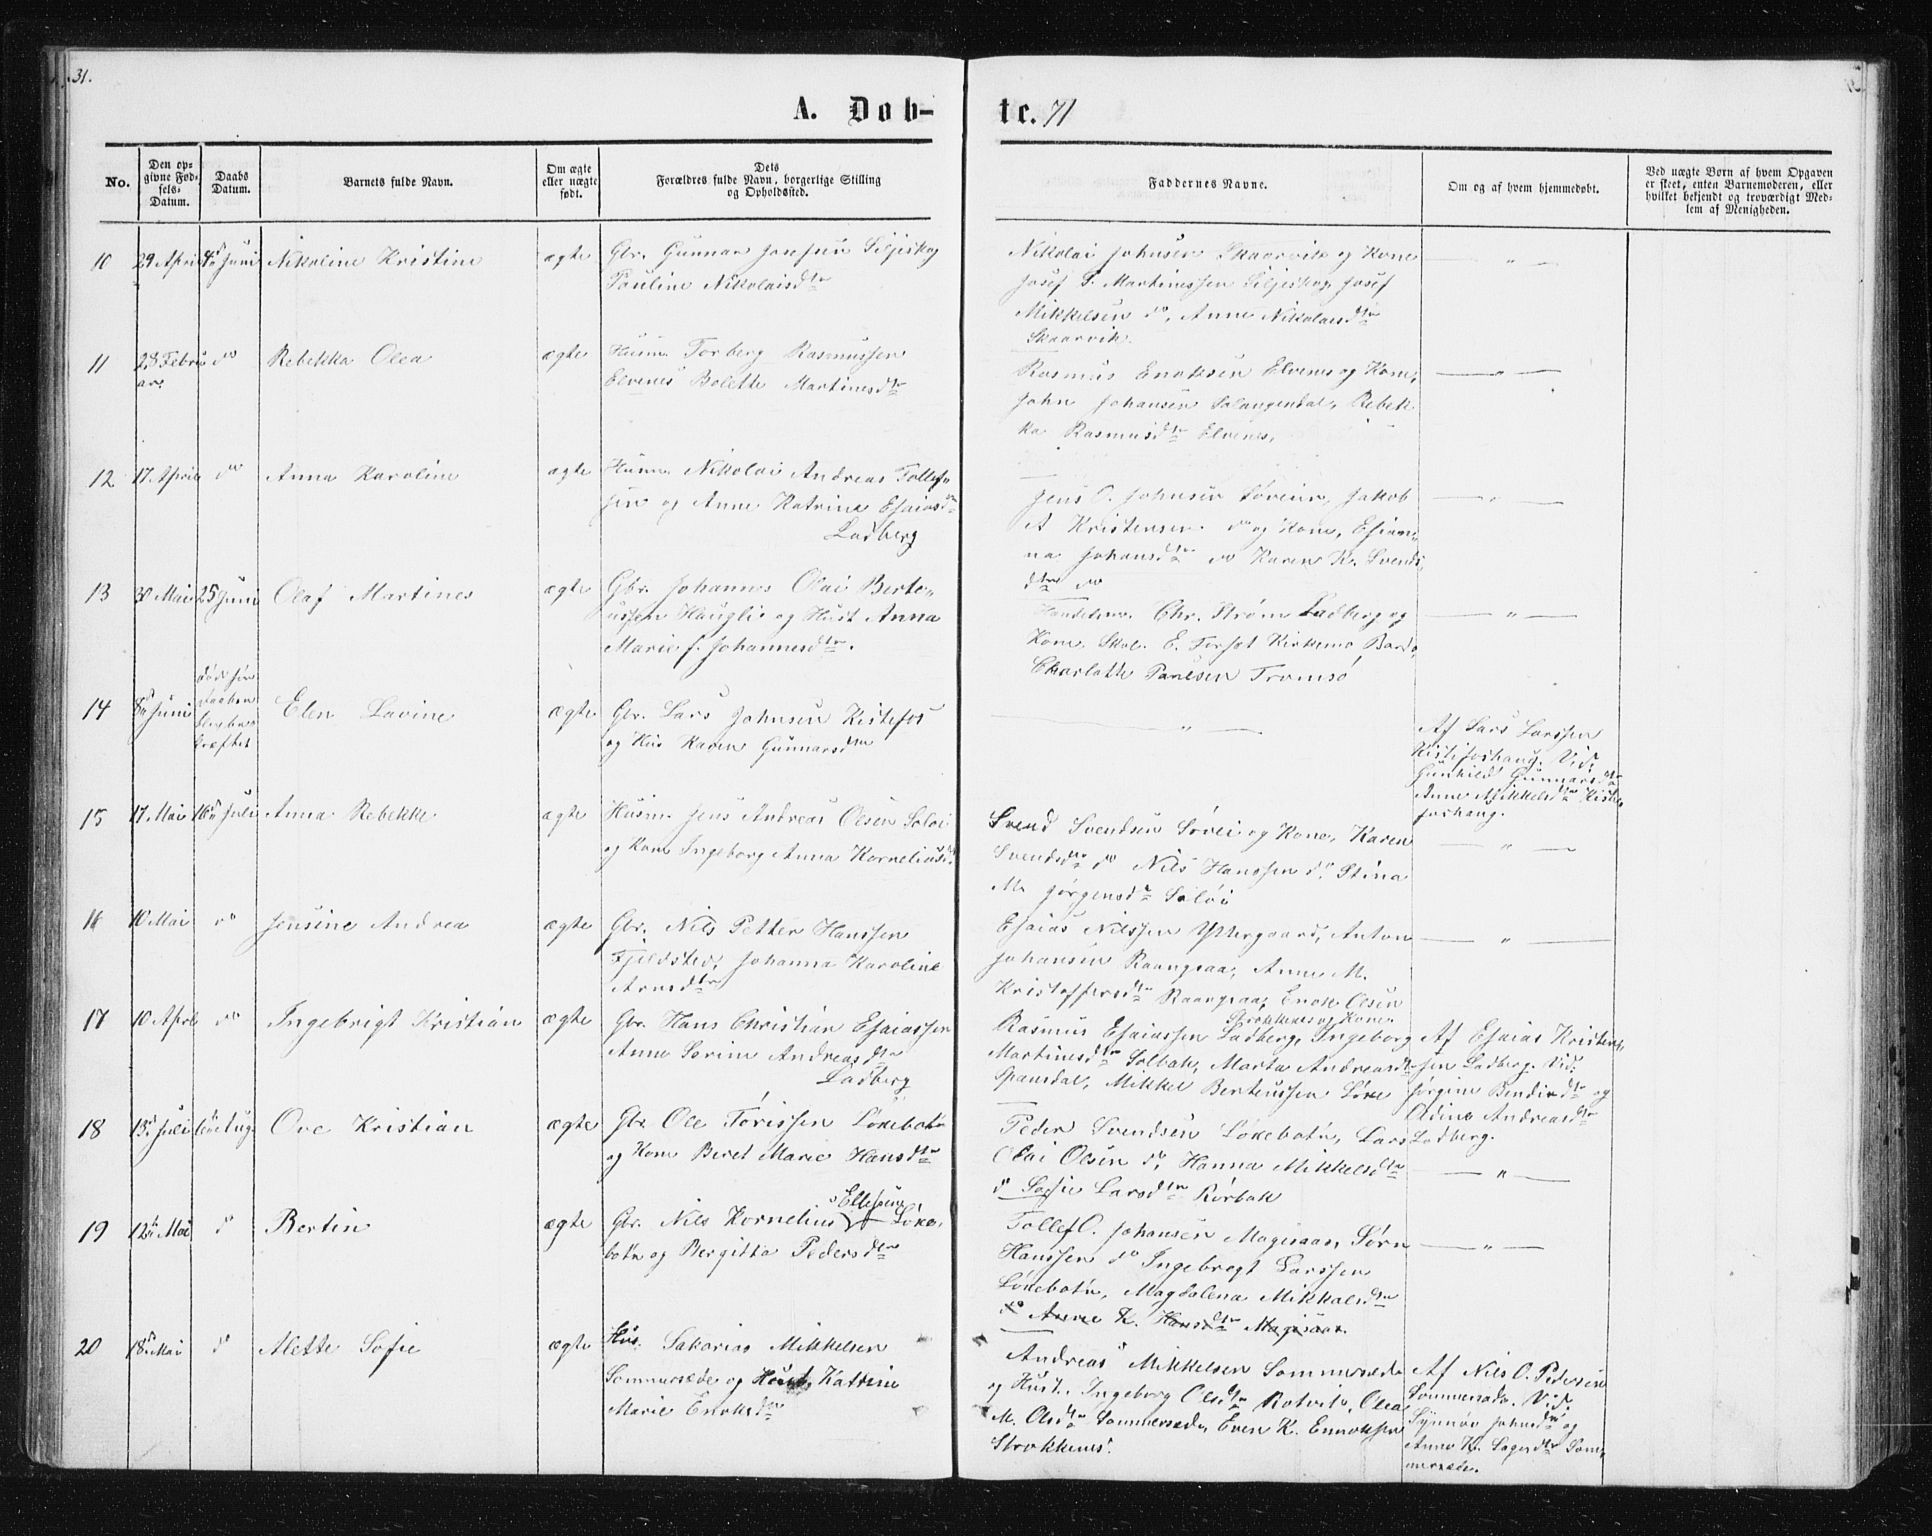 31.
A. Døb-
te. 71
No.
Den op-
givne Fød-
sels-
Datum.
Daabs
Datum.
Barnets fulde Navn.
Om ægte
eller uægte
født.
Dets
Forældres fulde Navn, borgerlige Stilling
og Opholdssted.
Faddernes Navne.
Om og af hvem hjemmedøbt.
Ved uægte Børn af hvem Opgaven
er skeet, enten Barnemoderen, eller
hvilket bekjendt og troværdigt Med-
lem af Menigheden.
10 29 April Juni Nikoline Kristine ægte Gbr. Gunnar Josefsen Siljeskog
Pauline Nikolaisdtr
Nikolai Johnsen Skaarvik og Kone
Josef P. Martinussen Siljeskog, Josef
Mikkelsen do, Anne Nikolaisdtr
Skaarvik.
— „ —
11 28 Febru
ar do Rebekka Olea ægte Husm. Torberg Rasmussen
Elvenes Bolette Martinusdtr
Rasmus Enoksen Elvenes og Kone,
John Johansen Salangendal, Rebek
ka Rasmusdtr Elvenes,
— „ —
12 17 April do Anna Karoline ægte Husm. Nikolai Andreas Tollef„
sen og Anne Katrine Esaiasdtr
Ladberg
Jens O. Johnsen Søveien, Jakob
A Kristensen do og Kone, Esian„
na Johansdtr do Karen K. Svends
dtr do
— „ —
13 30 Mai 25 Juni Olaf Martines ægte Gbr. Johannes Olai Berte„
ussen Hauglie og Hust Anna
Marie f. Johannesdtr.
Handelsm. Chr. Strøm Ladberg og
Kone, Skol. E. Forset Kirkemo Bardo,
Charlotte Paulsen Tromsø
— „ —
14 8de Juni
død før
Daaben
bekræftet
Elen Lavine ægte Gbr. Lars Johnsen Kistefos
og Hus Karen Gunnarsdtr
— „ —
Af Lars Larssen
Kistefoshaug. Vid.
Gunhild Gunnarsdtr
Anne Mikkelsdtr Kiste
foshaug.
15 17 Mai 16de Juli Anna Rebekke ægte Husm. Jens Andreas Olsen Soløi
og Kone Ingeborg Anna Korneliusdtr
Svend Svendsen Søvei og Kone, Karen
Svendsdtr do Nils Hanssen do Stina
M. Jørgensdtr Soløi
— „ —
16 10 Mai do Jensine Andrea ægte Gbr. Nils Petter Hanssen
Fjeldsted, Johanna Karoline
Arnsdtr
Esaias Nilssen Yttergaard, Anton
Johansen Raangsaa, Anne M.
Kristoffersdtr Raangsaa, Enok Olsen
Strokkenes og Kone.
— „ —
17 10 April do Ingebrigt Kristian ægte Gbr. Hans Christian Esaiassen
Anne Sørine Andreasdtr
Ladberg
Rasmus Esaiassen Ladberg, Ingeborg
Martinusdtr Solbak, Marta Andreasdtr
Spansdal, Mikkel Berteussen Løve
Af Esaias Kristen„
sen Ladberg. Vid.
Jørgine Bendixdtr og
Odine Andreasdtr
Ladberg.
18 13de Juli Aug. Ove Kristian ægte Gbr Ole Tørissen Løksebotn
og Kone Beret Marie Hansdtr
Peder Svendsen Løksebotn, Lars
Olai Olsen do, Hanna Mikkelsdtr
do Sofie Larsdtr Rørbak
— „ —
19 12te Mai do Bertin ægte Gbr. Nils Kornelius Ellefsen Løkse,
botn og Bergitta Pedersdtr
Tollef O. Johansen Magisaas, Sørn
Hanssen do Ingebregt Larssen
Løksebotn, Magdalena Mikkalsdtr
do Anne K. Hansdtr Magisaas.
— „ —
20 18de Mai do Alette Sofie ægte Hus. Sakarias Mikkelsen
Sommersæde og Hust, Katrine
Marie Enoksdtr
Andreas Mikkelsen Sommersæde
og Hust., Ingeborg Olsdtr Rotvik, Olea
M. Olsdtr Sommersæde, Even K. Ennoksen
Strokkenes.
Af Nils O. Pedersen
Sommersæde. Vid.
Synnøv Johnsdtr og
Anne K. Sagerdtr Som„
mersæde.